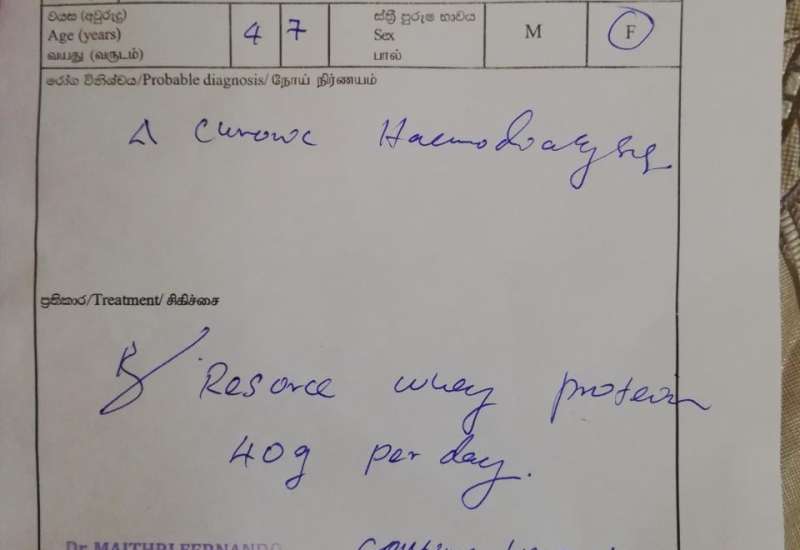 වයස (අවුරුදු)
Age (years)
வயது (வருடம்)
4 7
ස්ත්‍රී පුරුෂ භාවය
Sex
பால்
M
F
රෝග විනිශ්චය/Probable diagnosis/ நோய் நிர்ணயம்
Δ Chronic Haemodialysis
ප්‍රතිකාර/Treatment/ சிகிச்சை
Rx Resorce whey protein
40g per day.
Dr MAITHRI FERNANDO